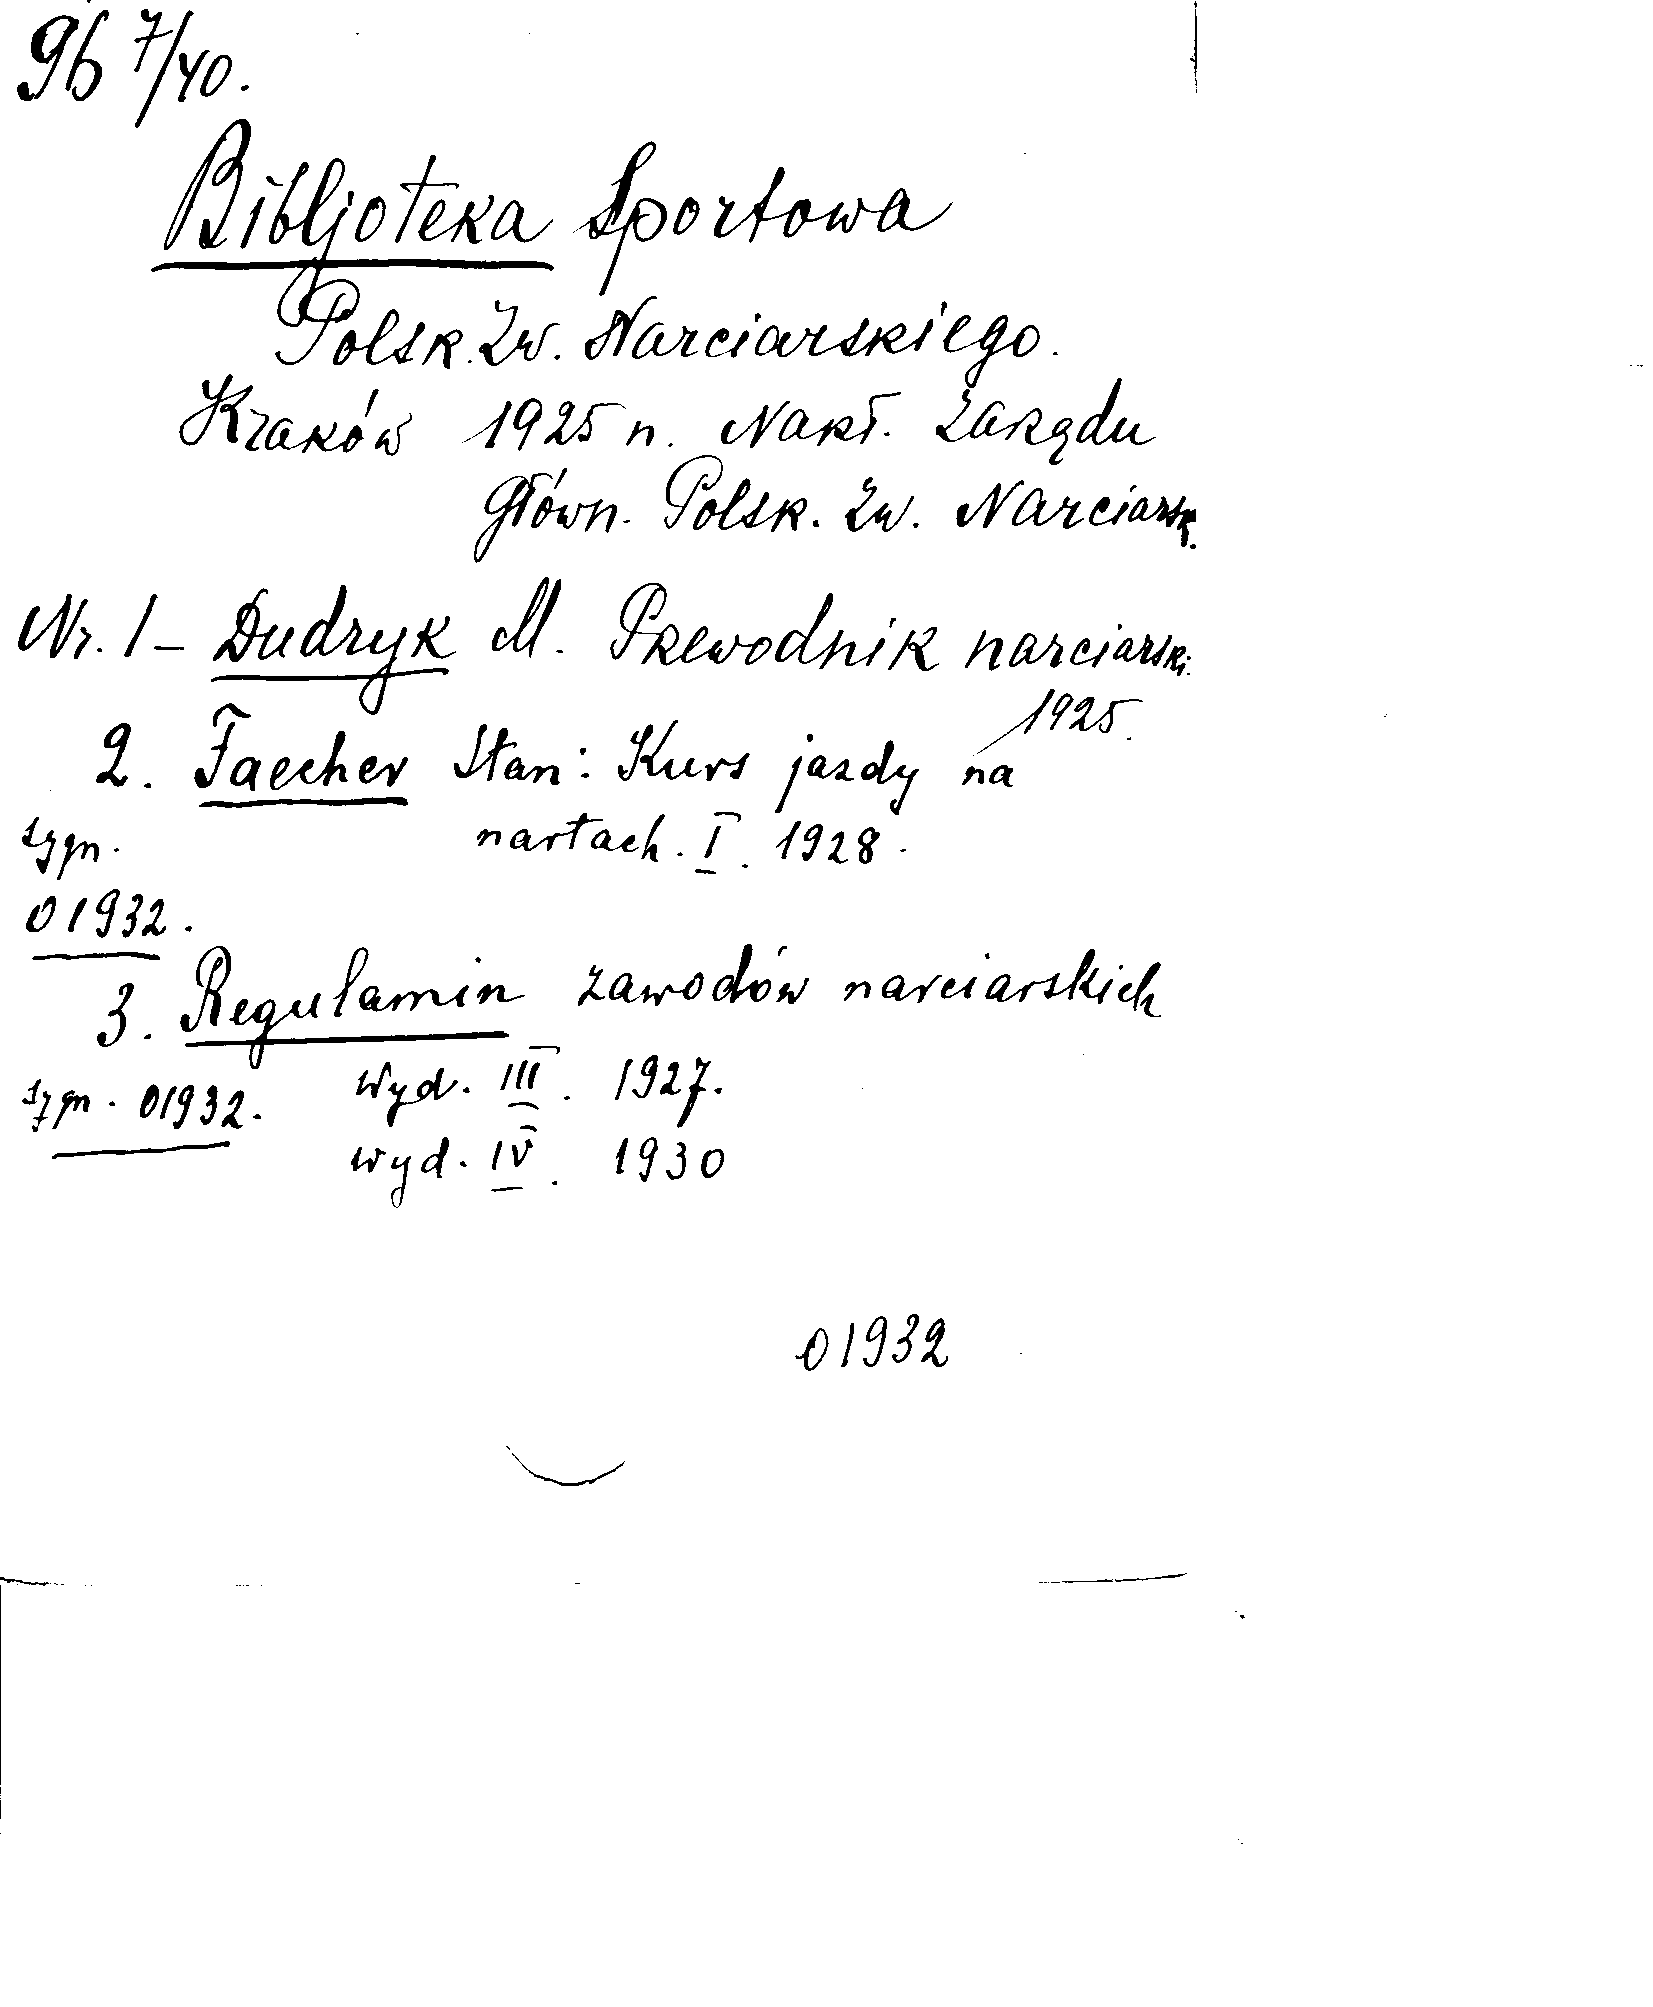 96 7/40.
Bibljoteka Sportowa
Polsk. Zw. Narciarskiego.
Kraków 1925 n. Nakł. Zarządu
Główn. Polsk. Zw. Narciarsk.
Nr. 1 – Dudryk M. Przewodnik narciarski.
1925.
2. Faecher Stan: Kurs jazdy na
nartach. I. 1928.
sygn.
01932.
3. Regulamin zawodów narciarskich
wyd. III. 1927.
sygn. 01932.
wyd. IV. 1930
01932